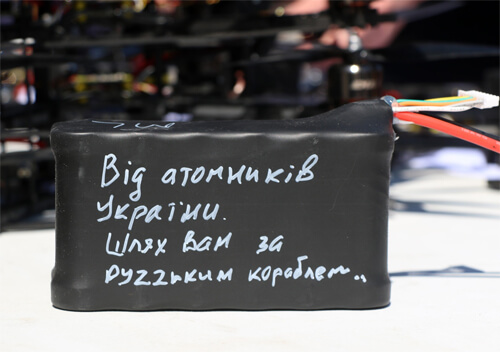 Від атомників
України.
Шлях вам за
руzzьким кораблем..